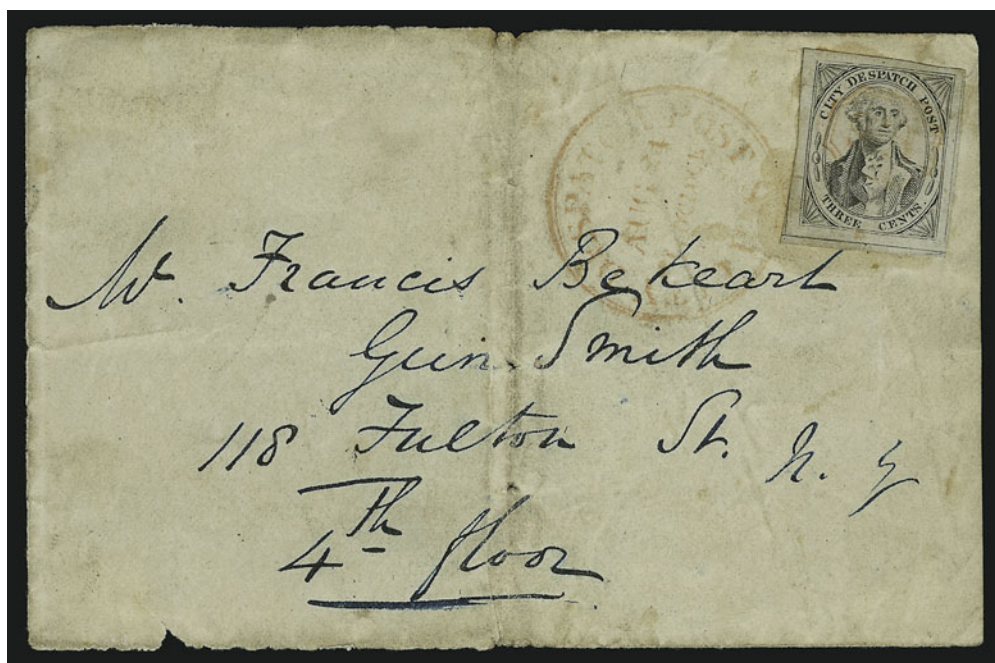 CITY DESPATCH POST
THREE CENTS.
POST
AUG 24
Mr. Francis Bekeart
Gun Smith
118 Fulton St. N. Y
4th floor